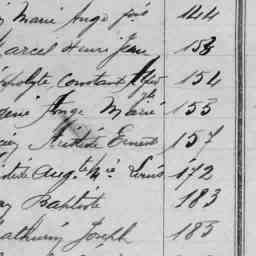 Marie Ange José 144
Marcel Henri Jean 153
Hippolyte Constant 154
Ange Marie 155
Aristide Ernest 157
Aug.te M.ie Louis 172
Baptiste 183
Mathurin Joseph 183